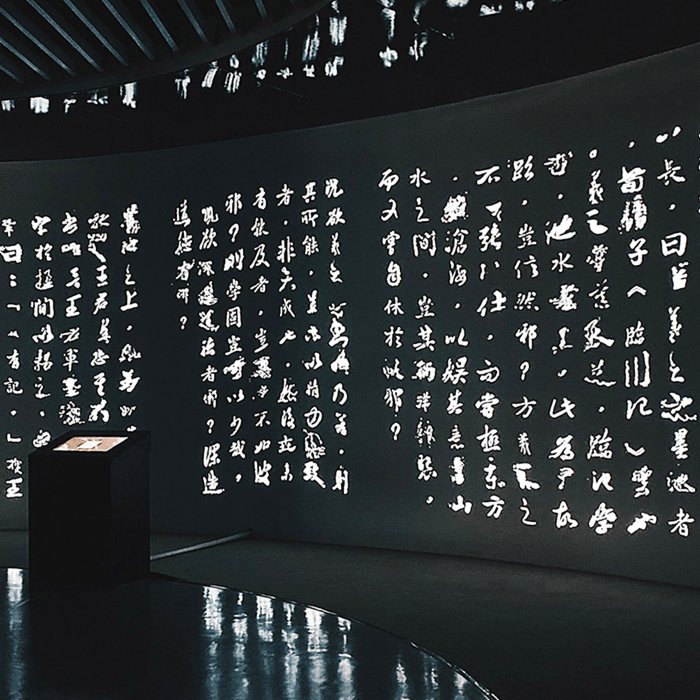 長，曰王羲之之墨池者
荀伯子《臨川記》雲也
。羲之嘗慕張芝，臨池學
書，池水盡黑，此為其故
跡，豈信然邪？方羲之之
不可強以仕，而嘗極東方
，出滄海，以娛其意於山
水之間，豈其徜徉肆恣，
而又嘗自休於此邪？
況欲羲之書晚乃善，則
其所能，蓋亦以精力自致
者，非天成也，然後世未
有能及者，豈其學不如彼
邪？則學固豈可以少哉，
況欲深造道德者邪？深造
道德者邪？
墨池之上，今為州
教授王君盛恐
書晉王右軍墨池
字於楹間以揭之，又
鞏曰：「願有記。」推王